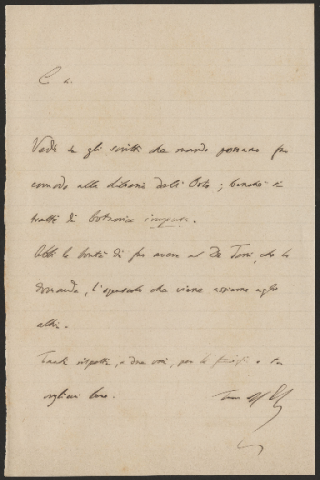 C a.
Vedi se gli scritti che mando possano far
comodo alla libreria dell'Orto; benchè si
tratti di botanica
Abbi la bontà di far avere al De Toni, che lo
domanda, l'opuscolo che viene assieme agli
altri.
Tanti rispetti, a due voi, per le e tu
voglimi bene.